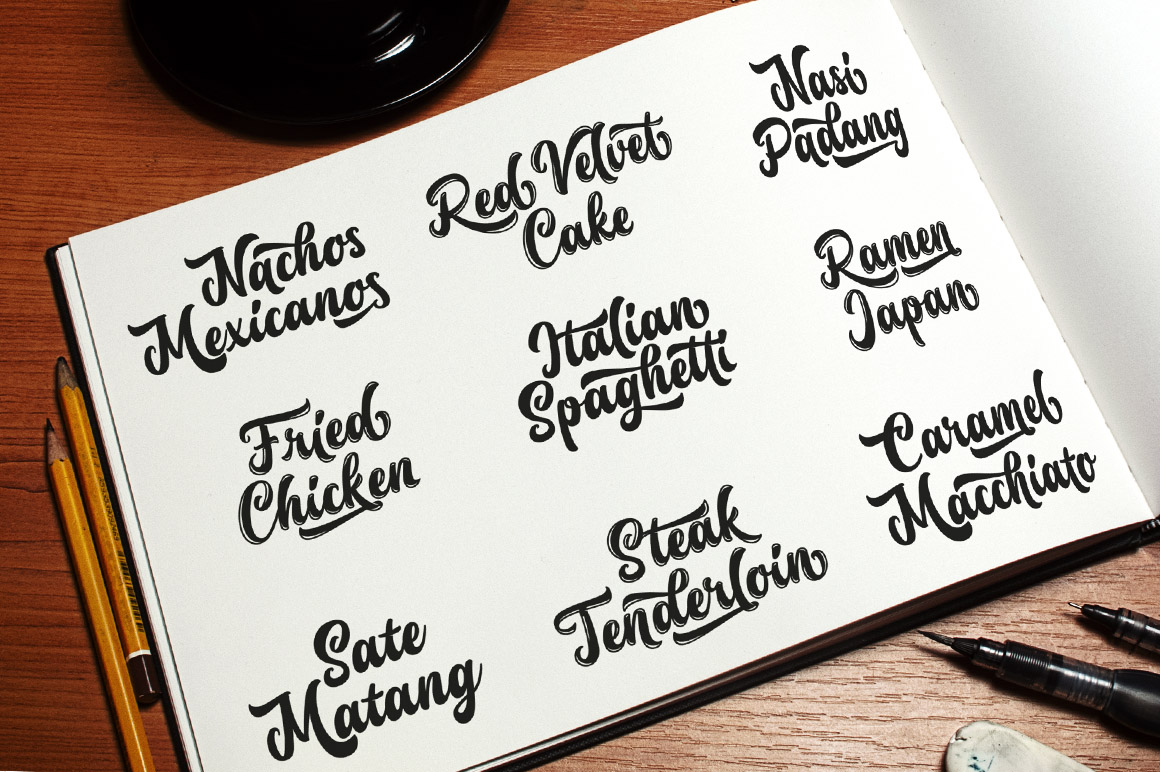 Nachos
Mexicanos
Red Velvet
Cake
Nasi
Padang
Fried
Chicken
Italian
Spaghetti
Ramen
Japan
Sate
Matang
Steak
Tenderloin
Caramel
Macchiato